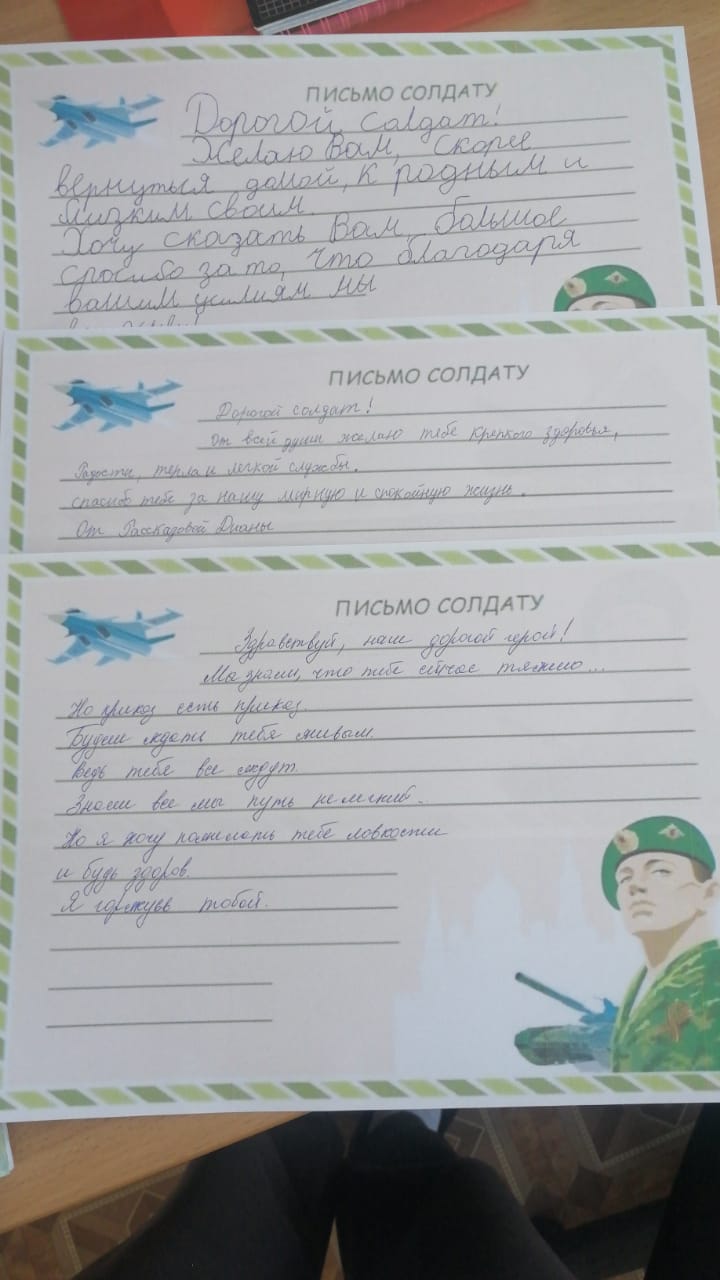 ПИСЬМО СОЛДАТУ
Дорогой солдат!
Желаю Вам, скорее
вернуться домой, к родным и
близким своим.
Хочу сказать Вам, большое
спосибо за то, что благодаря
вашим усилиям мы
ПИСЬМО СОЛДАТУ
Дорогой солдат!
От всей души желаю тебе крепкого здоровья,
Радости, терпла и легкой службы.
спасибо тебе за нашу мирную и спокойную жизнь.
От Рассказовой Дианы
ПИСЬМО СОЛДАТУ
Здравствуй, наш дорогой герой!
Мы знаем, что тебе сейчас тяжело...
Но приказ есть приказ.
Будем ждать тебя живым.
Ведь тебя все ждут.
Знаем все мы путь не легкий.
Но я хочу пожелать тебе ловкости
и будь здоров.
Я горжусь тобой.